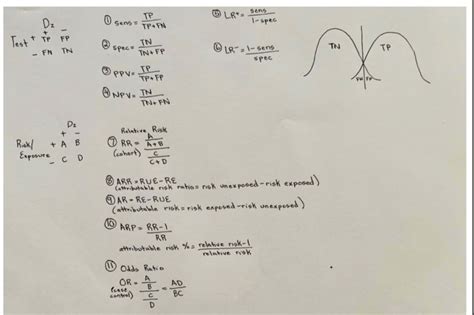 Dz
+ -
Test + TP FP
- FN TN
① sens = TP / TP+FN
② spec = TN / TN+FP
③ PPV = TP / TP+FP
④ NPV = TN / TN+FN
⑤ LR+ = sens / 1-spec
⑥ LR- = 1-sens / spec
TN TP
FN FP
Dz
+ -
Risk/ + A B
Exposure - C D
Relative Risk
⑦ RR = A / A+B
(cohort) C / C+D
⑧ ARR = RUE-RE
(attributable risk ratio = risk unexposed - risk exposed)
⑨ AR = RE-RUE
(attributable risk = risk exposed - risk unexposed)
⑩ ARP = RR-1 / RR
attributable risk % = relative risk-1 / relative risk
⑪ Odds Ratio
OR = A / B = AD / BC
(case control) C / D